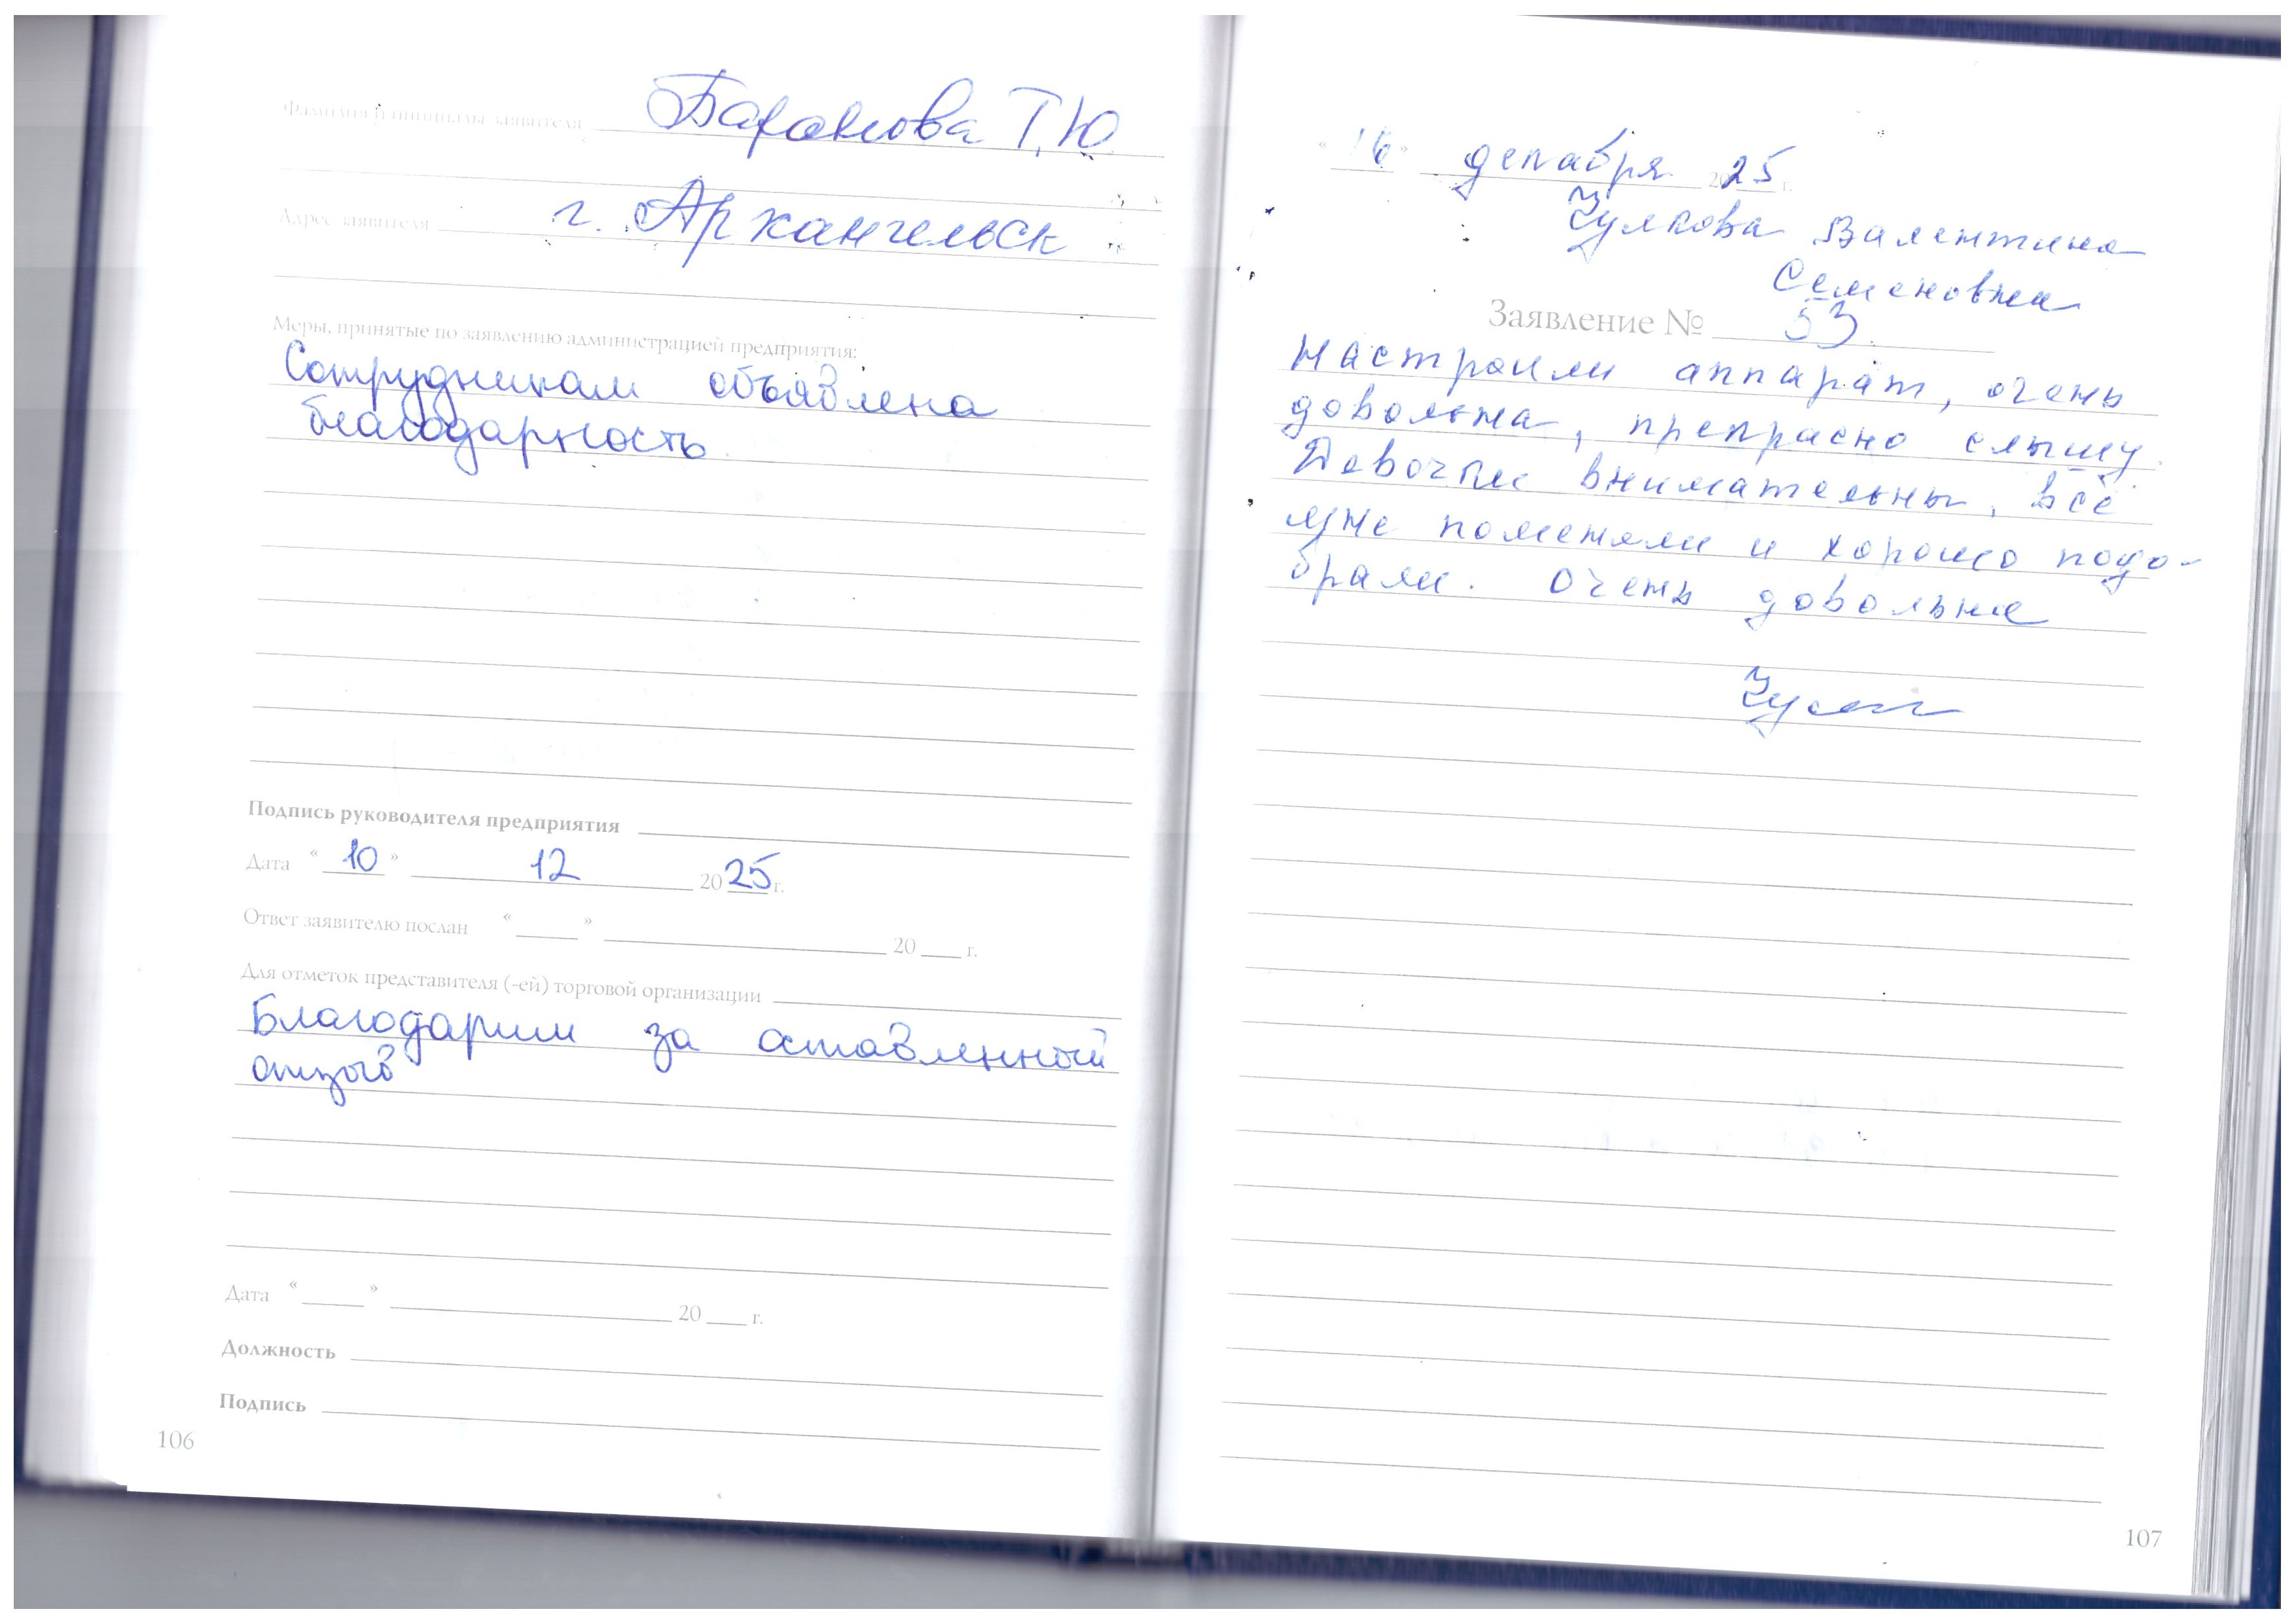 Фамилия и инициалы заявителя Баранова Т.Ю.
Адрес заявителя г. Архангельск
Меры, принятые по заявлению администрацией предприятия:
Сотрудникам объявлена
благодарность
Подпись руководителя предприятия
Дата «10» 12 2025 г.
Ответ заявителю послан « » 20 г.
Для отметок представителя (-ей) торговой организации
Благодарим за оставленный
отзыв
Дата « » 20 г.
Должность
Подпись
106
«16» декабря 2025 г.
Чулкова Валентина
Семеновна
Заявление № 53
Настроили аппарат, очень
довольна, прекрасно слышу.
Девочки внимательны, всё
уже поменяли и хорошо подо-
брали. Очень довольна
107